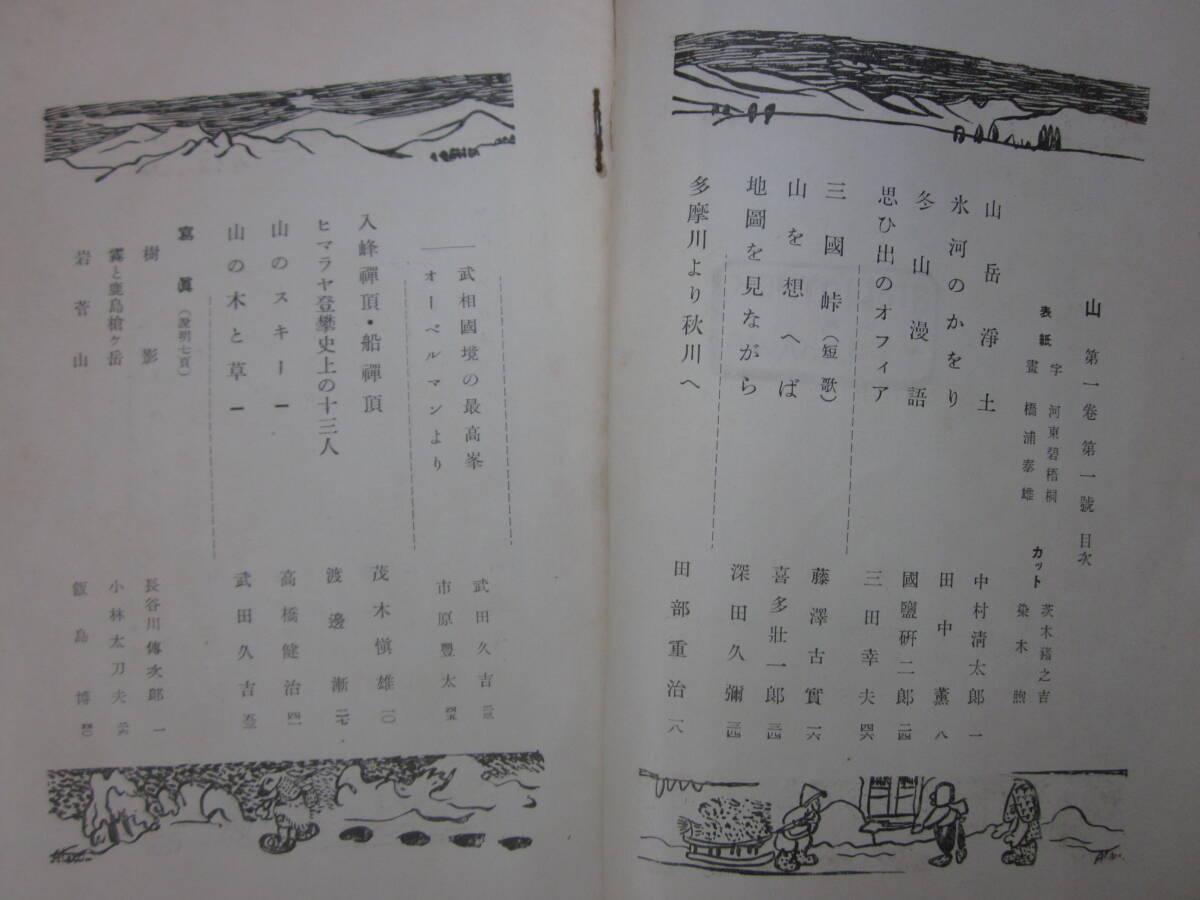 山 第一卷 第一號 目次
表紙 字 河東碧梧桐
畫 橋浦泰雄
カット 茨木猪之吉
染木煦
山岳淨土 中村淸太郎 一
氷河のかをり 田中薰 八
冬山漫語 國鹽硏二郎 二四
思ひ出のオフィア 三田幸夫 四六
三國峠（短歌） 藤澤古實 一六
山を想へば 喜多壯一郎 三四
地圖を見ながら 深田久彌 三四
多摩川より秋川へ 田部重治 一八
武相國境の最高峯 武田久吉
オーベルマンより 市原豐太
入峰禪頂・船禪頂 茂木愼雄 一〇
ヒマラヤ登攀史上の十三人 渡邊漸 二七
山のスキー 一 高橋健治 四一
山の木と草 一 武田久吉
寫眞（說明七頁）
樹影 長谷川傳次郎 一
霧と鹿島槍ヶ岳 小林太刀夫 二六
岩菅山 飯島博